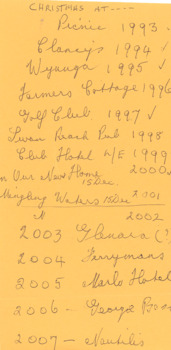 CHRISTMAS AT ----
Picnic 1993 ✓
Clancys 1994 ✓
Wyunga 1995 ✓
Farmers Cottage 1996
Golf Club 1997 ✓
Swan Reach Pub 1998
Club Hotel 1999
In Our New Home 2000 ✓
15 Dec.
Waters 15 Dec 2001
" 2002
2003 Glenara (?)
2004 Ferrymans
2005 Marlo Hotel
2006 - George
2007 - Nautilis